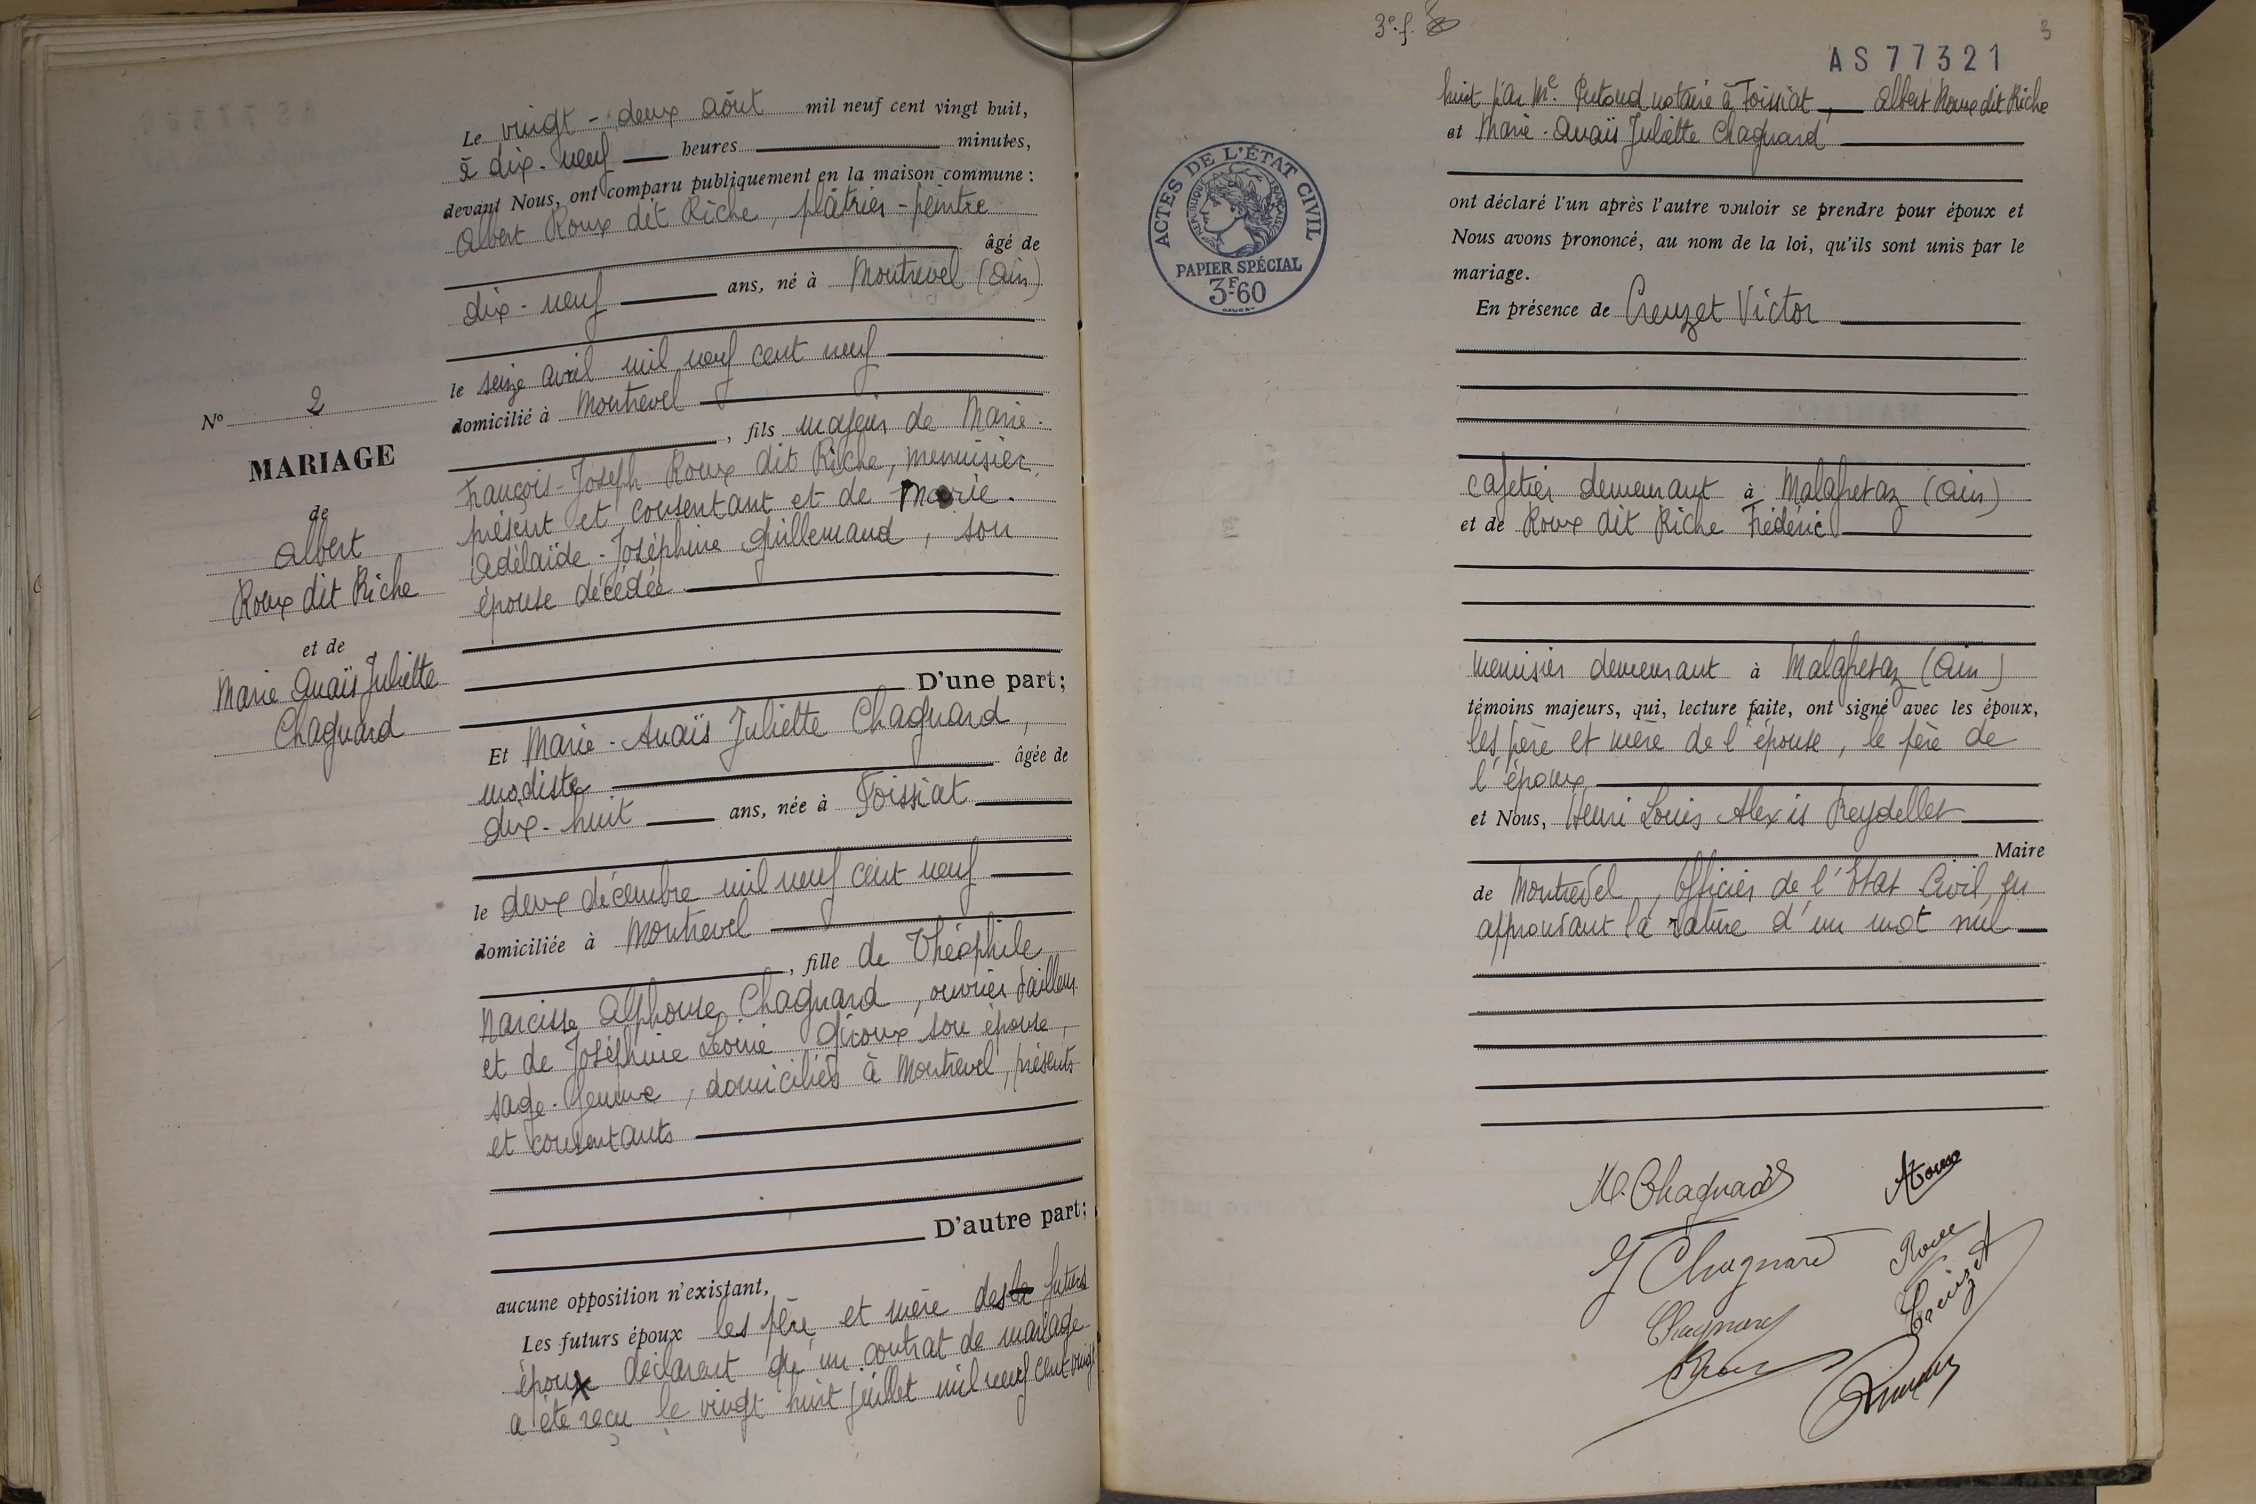 Nº 2
MARIAGE
de
Albert
Roux dit Riche
et de
Marie Anaïs Juliette
Chagnard
Le vingt-deux août mil neuf cent vingt huit,
à dix-neuf heures minutes,
devant Nous, ont comparu publiquement en la maison commune :
Albert Roux dit Riche, plâtrier-peintre
âgé de
dix-neuf ans, né à Montrevel (Ain)
le seize avril mil neuf cent neuf
domicilié à Montrevel
, fils majeur de Marie-
François-Joseph Roux dit Riche, menuisier
présent et consentant et de Marie-
Adélaïde-Joséphine Guillemaud, son
épouse décédée
D'une part;
Et Marie-Anaïs Juliette Chagnard,
modiste âgée de
dix-huit ans, née à Foissiat
le deux décembre mil neuf cent neuf
domiciliée à Montrevel
, fille de Théophile
Narcisse Alphonse Chagnard, ouvrier tailleur
et de Joséphine Léonie Giroux son épouse,
sage-femme, domiciliés à Montrevel, présents
et consentants
D'autre part;
aucune opposition n'existant,
Les futurs époux les père et mère des futurs
époux déclarent qu'un contrat de mariage
a été reçu le vingt huit juillet mil neuf cent vingt
3e. f.
3
AS77321
ACTES DE L'ÉTAT CIVIL
RÉPUBLIQUE FRANÇAISE
PAPIER SPÉCIAL
3F.60
huit par Me. notaire à Foissiat, Albert Roux dit Riche
et Marie-Anaïs Juliette Chagnard
ont déclaré l'un après l'autre vouloir se prendre pour époux et
Nous avons prononcé, au nom de la loi, qu'ils sont unis par le
mariage.
En présence de Creuzet Victor
cafetier demeurant à Malafretaz (Ain)
et de Roux dit Riche Frédéric
menuisier demeurant à Malafretaz (Ain)
témoins majeurs, qui, lecture faite, ont signé avec les époux,
les père et mère de l'épouse, le père de
l'époux
et Nous, Henri Louis Alexis Reydellet
Maire
de Montrevel, Officier de l'Etat Civil, en
approuvant la rature d'un mot nul
M. Chagnard
A Roux
J Chagnard
Roux
Chagnard
Creuzet